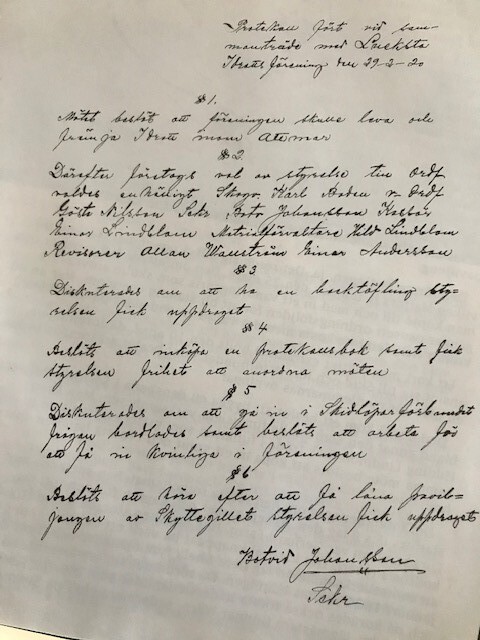 Protokoll fört vid sam-
manträde med Lucksta
Idrottsförening den 29-2-20
§ 1.
Mötet beslöt att föreningen skulle leva och
främja Idrott inom
§ 2.
Därefter företogs val av styrelse till Ordf
valdes enhälligt Skogv. Karl Boden v. Ordf
Gösta Nilsson Sekr Botv Johansson Kassör
Einar Lindblom Matrialförvaltare Hild Lindblom
Revisorer Allan Wallström Einar Andersson
§ 3
Diskuterades om att ha en backtäfling sty-
relsen fick uppdraget
§ 4
Beslöts att inköpa en protokollsbok samt fick
styrelsen frihet att anordna möten
§ 5
Diskuterades om att gå in i Skidlöparförbundet
frågan bordlades samt beslöts att arbeta för
att få in kvinliga i föreningen
§ 6
Beslöts att höra efter att få låna pavil-
jongen av Skyttegillet styrelsen fick uppdraget
Botvid Johansson
Sekr